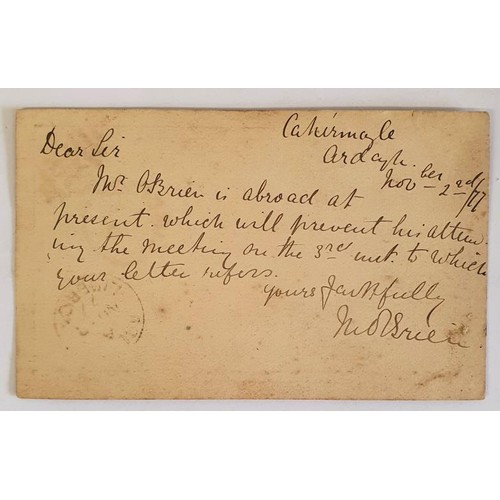 Cahirmoyle
Ardagh.
Dear Sir
Novber 2nd/77
Mr. OBrien is abroad at
present. which will prevent his atten-
ing the meeting on the 3rd inst. to which
your letter refers.
yours faithfully
M OBrien